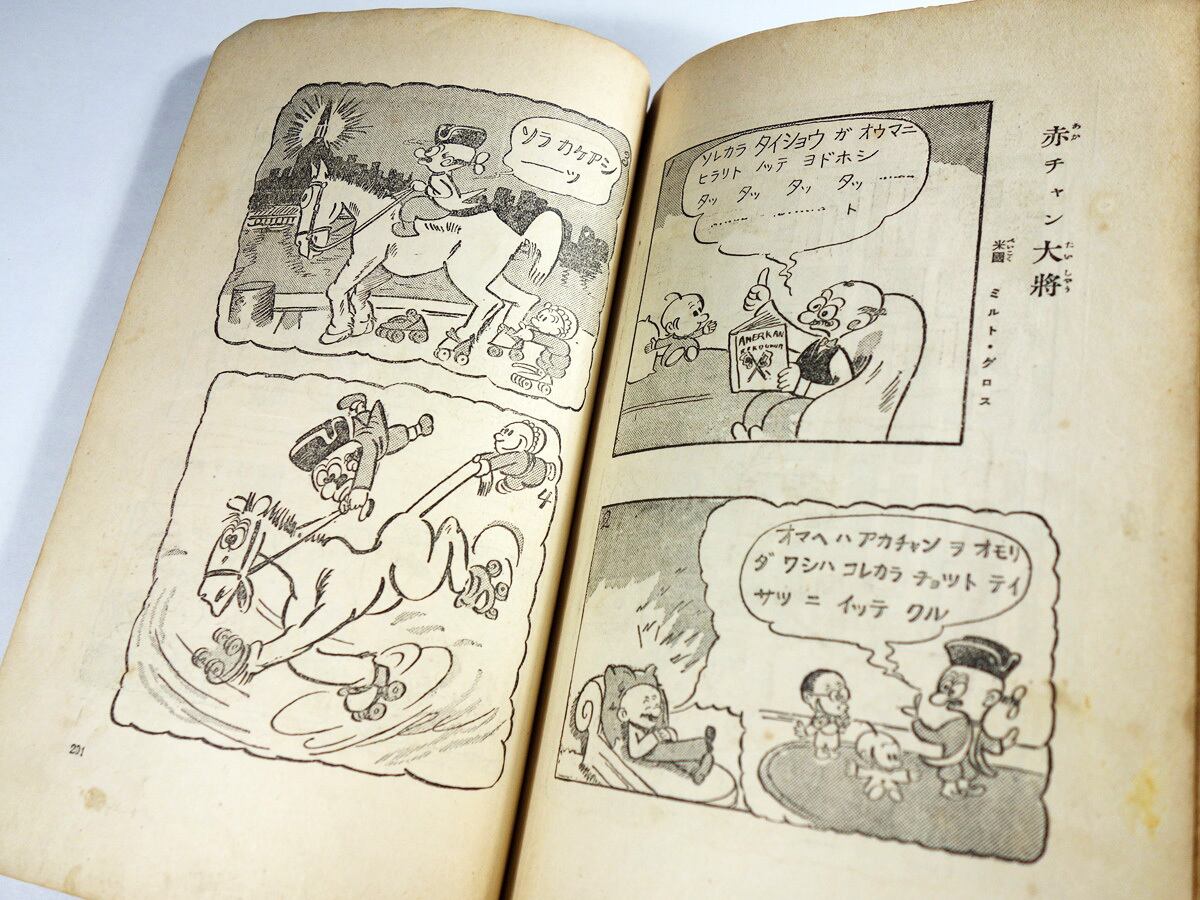 赤チャン大將
あか
たいしやう
米國 ミルト・グロス
べいこく
ソレカラ タイショウ ガ オウマニ
ヒラリト ノッテ ヨドホシ
タッ タッ タッ タッ ……
……………ト
AMERKAN
2
オマヘハ アカチャン ヲ オモリ
ダ ワシハ コレカラ チョット テイ
サツ ニ イッテ クル
ソラ カケアシ
―ッ
4
201